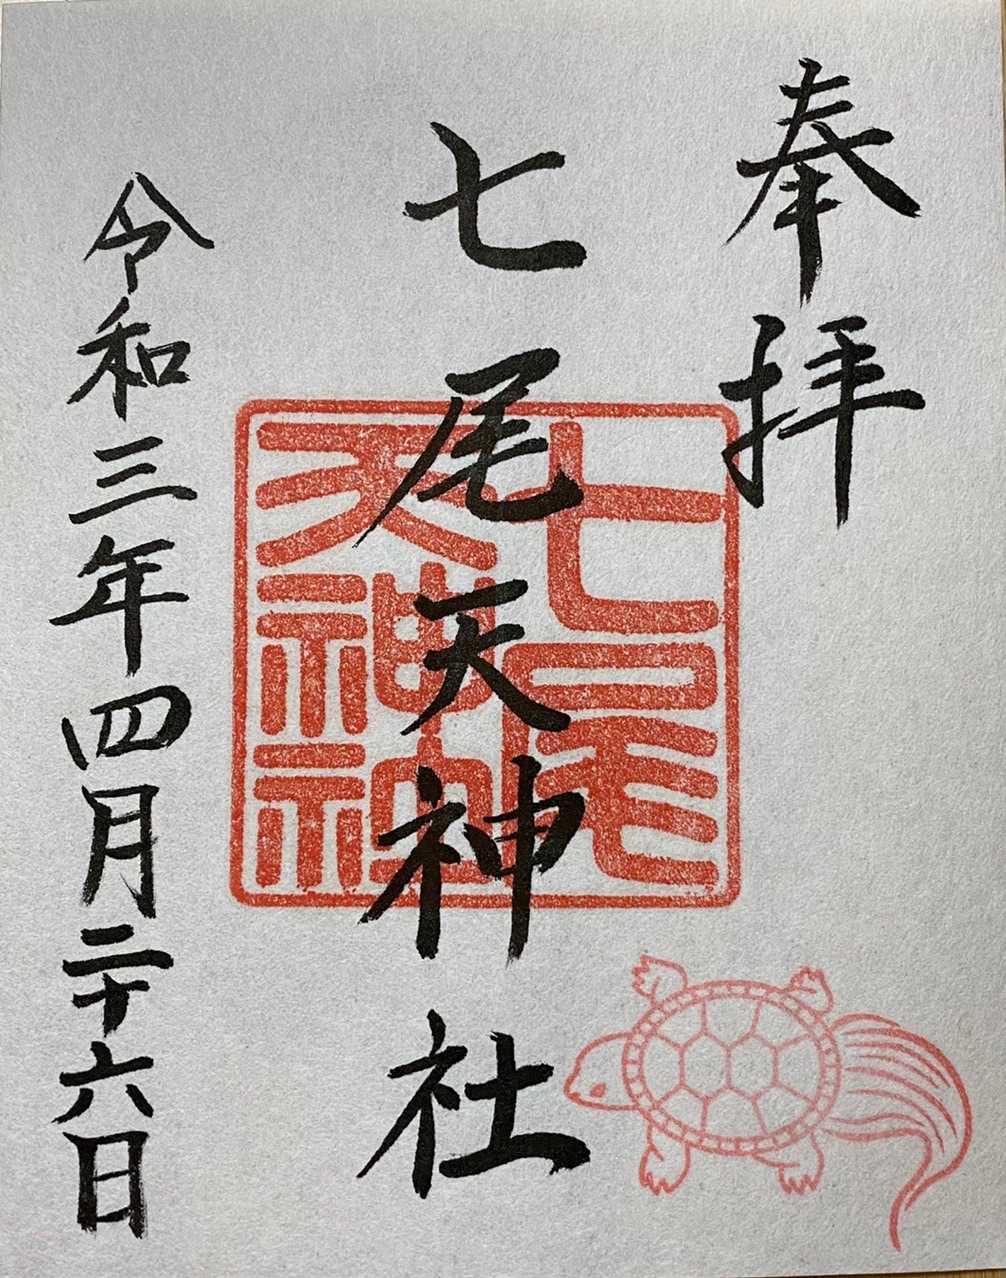 奉拝
七尾天神社
七尾
天神社
令和三年四月二十六日